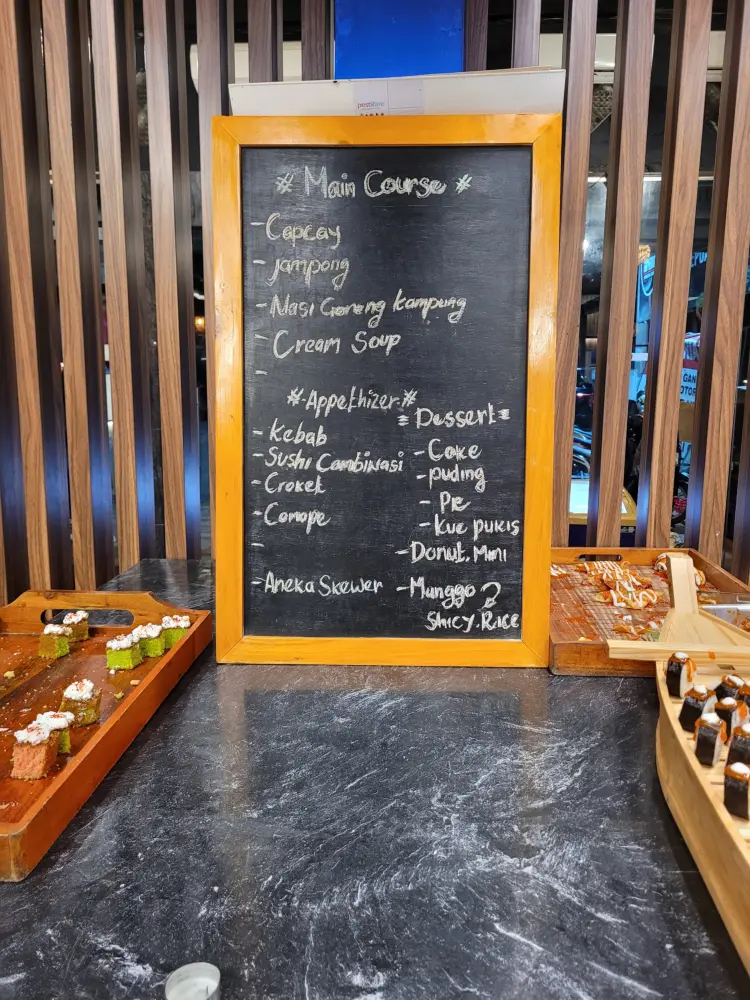 # Main Course #
- Capcay
- Jampong
- Nasi Goreng Kampung
- Cream Soup
-
# Appethizer #
- Kebab
- Sushi Combinasi
- Croket
- Canape
-
- Aneka Skewer
= Dessert =
- Cake
- puding
- Pie
- Kue pukis
- Donut. Mini
- Manggo &
Sticy. Rice
GAN
OTOR